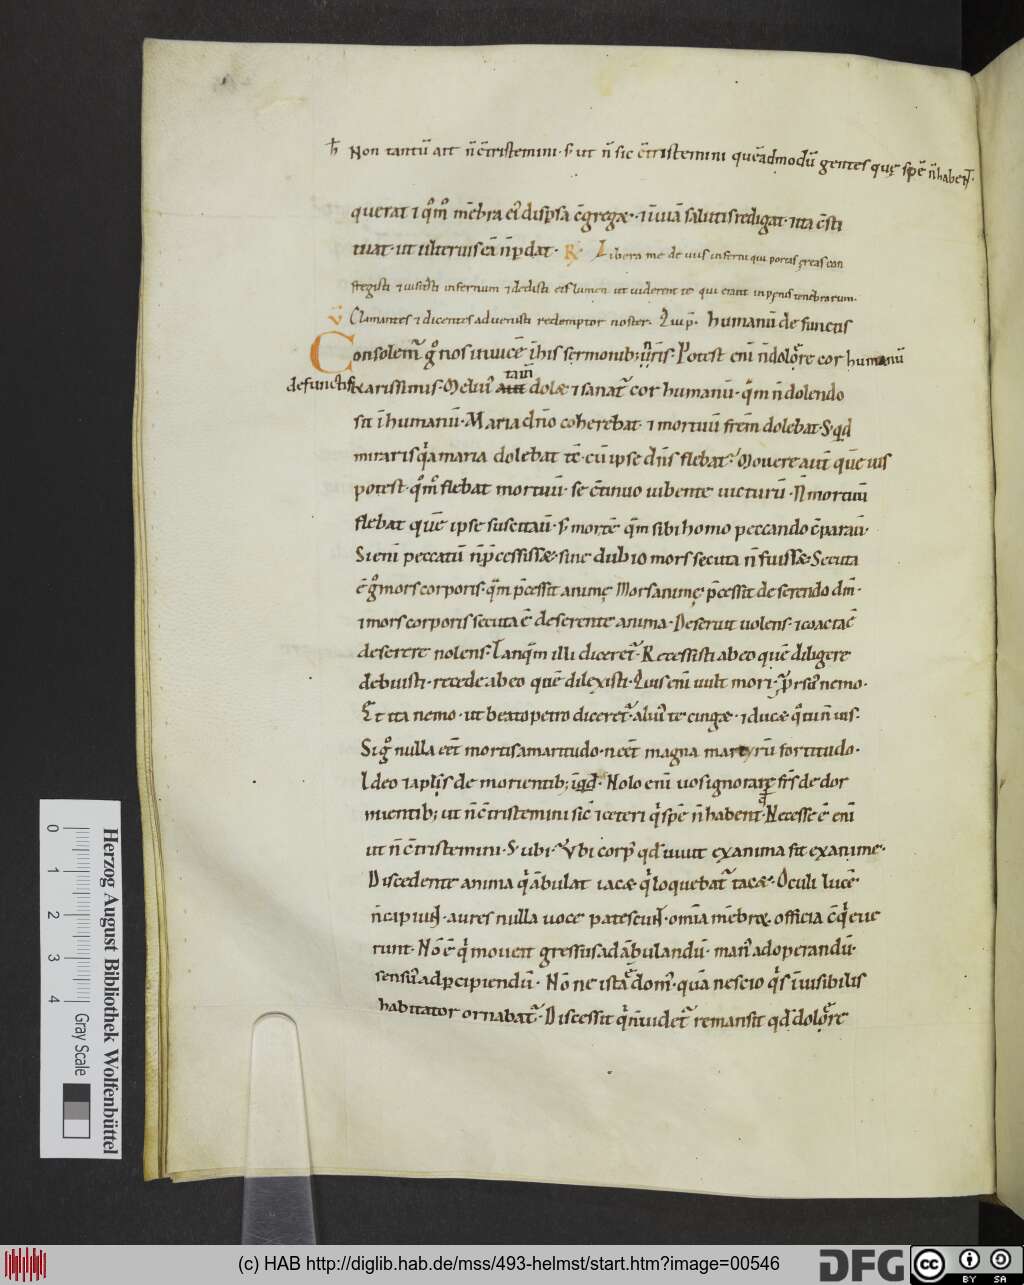 ħ Non tantū ait n̄ cōtristemini · s; ut n̄ sic cōtristemini quēadmodū gentes quę spē n̄ habent.
querat ⁊ qͦmͦ mēbra ei᷒ dispsa cōgregæ · ⁊ in uiā salutis redigat · ita cōsti
tuat · ut ulterius eā n̄ pdat · R̷ Libera me de uiis inferni qui portas ęreas con
fregisti ⁊ uisitasti infernum ⁊ dedisti eis lumen ut uiderent te qui erant in pęnis tenebrarum.
v̄ Clamantes ⁊ dicentes aduenisti redemptor noster. Qui p̄. humanū de functis
Consolem᷑ gͦ nos inuicē ī his sermonib; ur̄is. Potest eni n̄ dolore cor humanū
defunctis
karissimi · Meli᷒ aut dolæ ⁊ sanat᷑ cor humanū · qͣm n̄ dolendo
tam̄
sit īhumanū · Maria dn̄o coherebat · ⁊ mortuū frēm dolebat · S; qd
miraris qͥa maria dolebat tc̄ · cū ipse dn̄s flebat · Mouere aut̄ quē uis
potest · qͦmͦ flebat mortuū · se cōtinuo uibente uicturū · N̄ mortuū
flebat quē ipse suscitauͥ · s; mortē qͣm sibi homo peccando cōparauͥ ·
Si eni peccatū n̄ p̄cessissæ · sine dubio mors secuta n̄ fuissæ · Secuta
ē gͦ mors corporis · qͣm p̄cessit animę Mors animę p̄cessit deserendo dm̄ ·
⁊ mors corporis secuta ē deserente anima · Deseruit uolens · ⁊ coacta ē
deserere nolens · Tanqͣm illi diceret᷑ · Recessisti ab eo quē diligere
debuisti · recede ab eo quē dilexisti · Quis eni uult mori · prs᷒ nemo ·
Et ita nemo · ut beato petro diceret᷑ · ali᷒ te cingæ · ⁊ ducæ qͦ tu n̄ uis ·
Si gͦ nulla eēt mortis amaritudo · n eēt magna martyrū fortitudo ·
Ideo ⁊ apl᷒s de morientib; inqd · Nolo eni uos ignorare frs de dor
mientib; ut n̄ cōtristemini sic̄ ⁊ ceteri qͥ spē n̄ habent · Necesse ē eni
ut n̄ cōtristemini · S; ubi · Vbi corp᷒ qd uiuit ex anima fit exanime ·
Discedente anima qͥ ābulat iacæ qͥ loquebat᷑ tacæ · Oculi lucē
n̄ capiunt · aures nulla uoce patescunt · om̄ia mēbroꝝ officia cōqͥeue
runt · Nō ē qͥ mouent gressus ad ābulandū · man᷒ ad operandū ·
sens᷒ ad pcipiendū · Nō ne ista ē dom᷒ · quā nescio qͥs īuisibilis
habitator ornabat᷑ · Discessit qͥ n̄ uidet᷑ remansit qd dolore
0 1 2 3 4
Gray Scale
Herzog August Bibliothek Wolfenbüttel
(c) HAB http://diglib.hab.de/mss/493-helmst/start.htm?image=00546
DFG cc BY SA